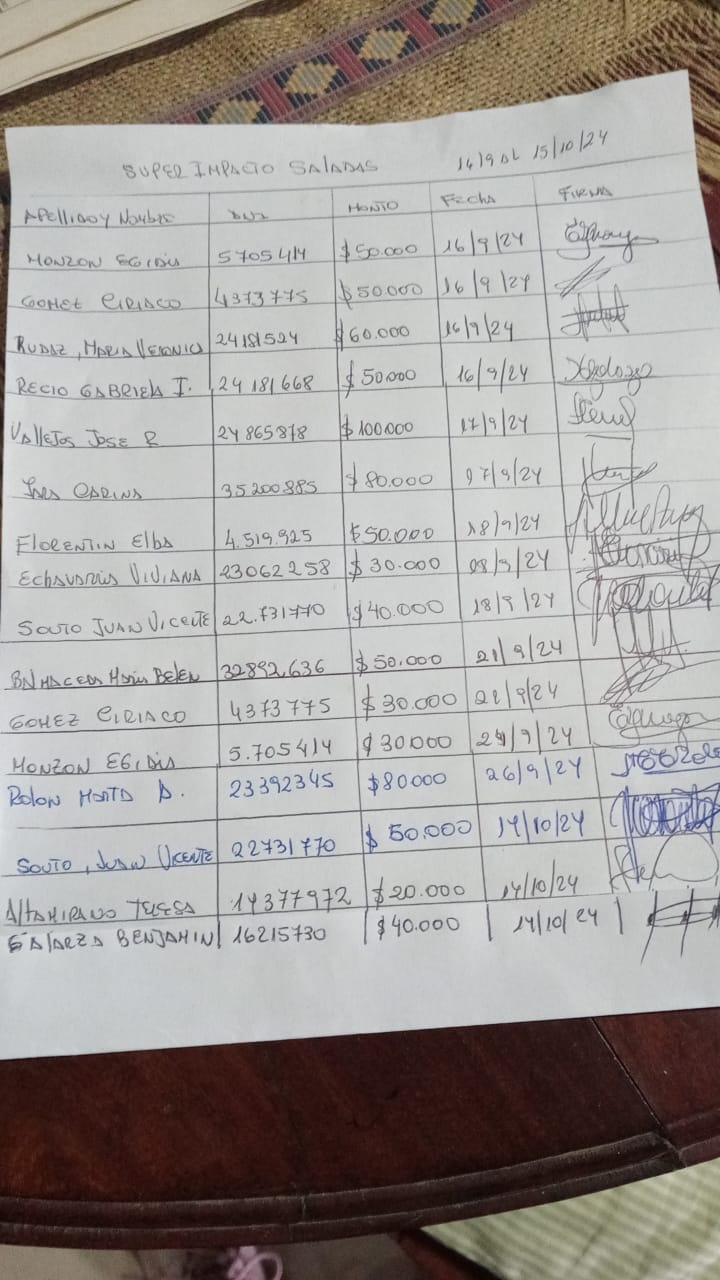 SUPER IMPACTO SALADAS 14/9 AL 15/10/24
Apellido y Nombre DNI MONTO Fecha FIRMA
MONZON EGIDIA 5705414 $50.000 16/9/24
GOMEZ CIRIACO 4373775 $50.000 16/9/24
RUDAZ, MARIA VERONICA 24181524 $60.000 16/9/24
RECIO GABRIELA I. 24181668 $50.000 16/9/24
VALLEJOS JOSE R 24865878 $100.000 17/9/24
CARINA 35200885 $80.000 17/9/24
FLORENTIN Elba 4.519.925 $50.000 18/9/24
Echavarria VIVIANA 23062258 $30.000 18/9/24
SOUTO JUAN VICENTE 22.731770 $40.000 18/9/24
BALMACEDA Maria Belen 32892636 $50.000 21/9/24
GOMEZ CIRIACO 4373775 $30.000 21/9/24
MONZON EGIDIA 5.705414 $30000 24/9/24
ROLON 23392345 $80000 26/9/24
SOUTO, JUAN VICENTE 22731770 $50.000 14/10/24
AltaMIRANO TERESA 14377972 $20.000 14/10/24
GALARZA BENJAMIN 16215730 $40.000 14/10/24